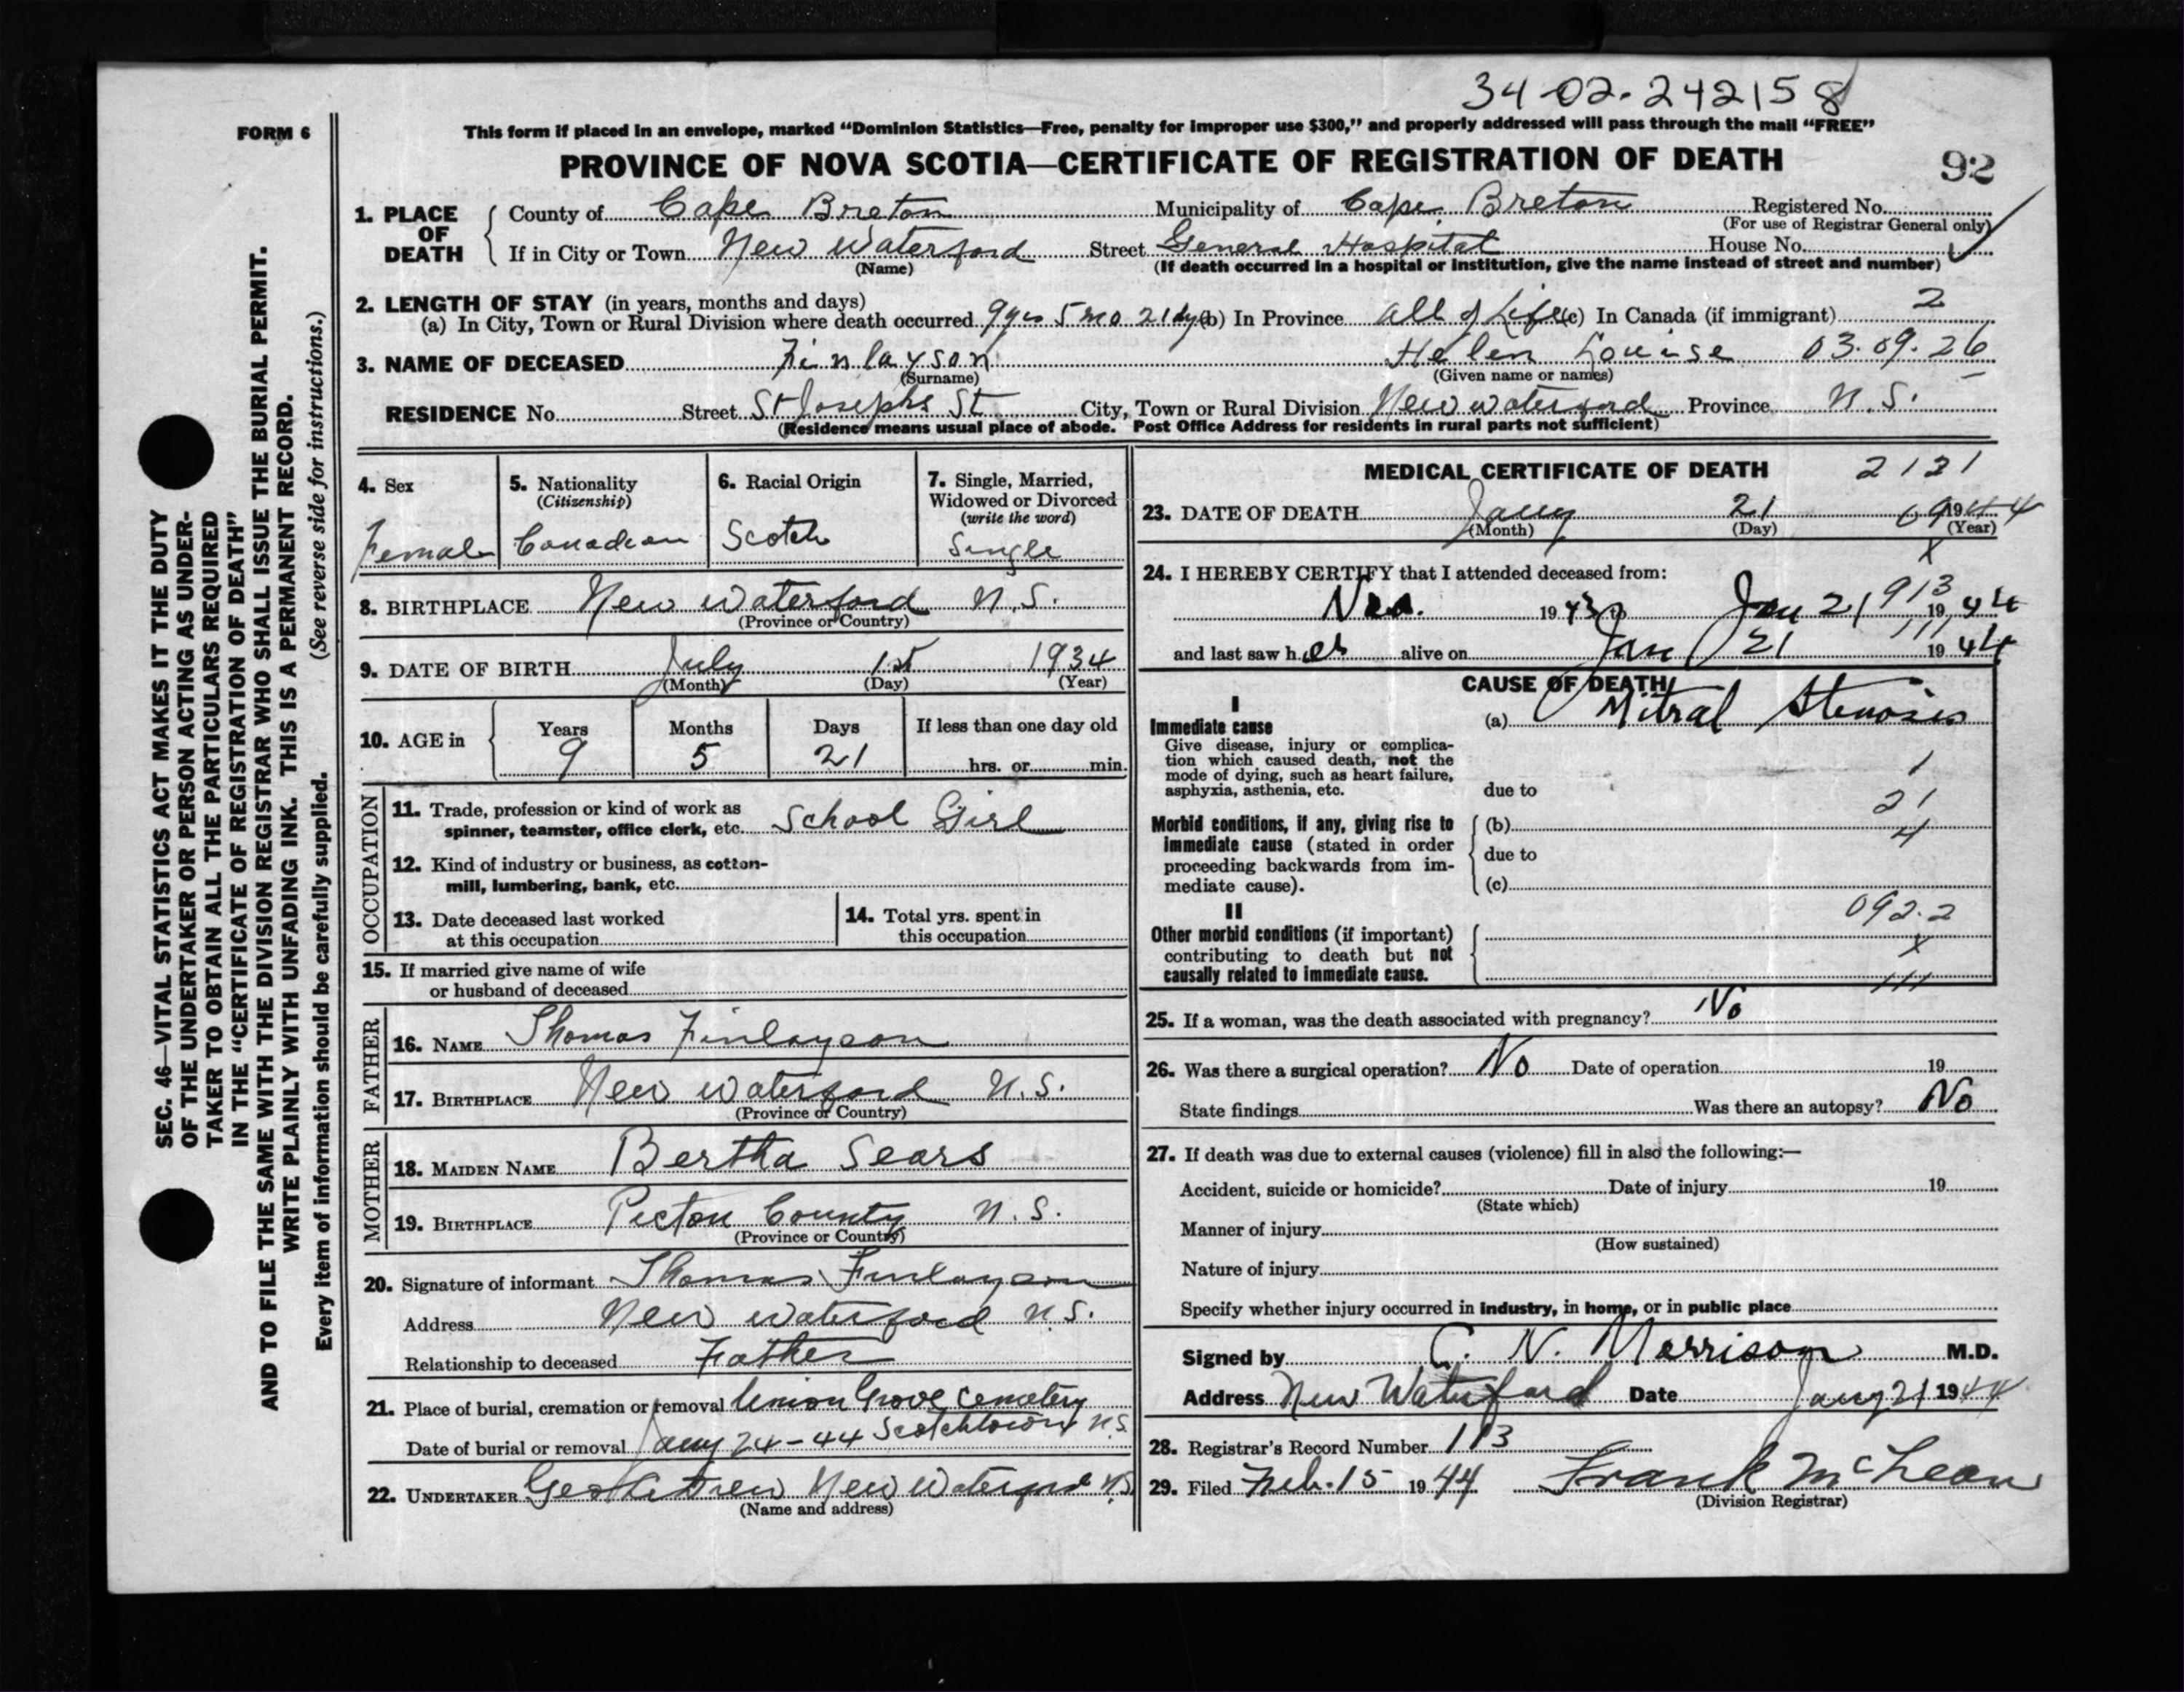 34-02-242158
FORM 6
This form if placed in an envelope, marked "Dominion Statistics—Free, penalty for improper use $300," and properly addressed will pass through the mail "FREE"
PROVINCE OF NOVA SCOTIA—CERTIFICATE OF REGISTRATION OF DEATH
92
1. PLACE OF DEATH
County of Cape Breton Municipality of Cape Breton Registered No.
(For use of Registrar General only)
If in City or Town New Waterford Street General Hospital House No.
(Name) (If death occurred in a hospital or institution, give the name instead of street and number)
2. LENGTH OF STAY (in years, months and days)
(a) In City, Town or Rural Division where death occurred 9yrs 5mo 21dy (b) In Province All of Life (c) In Canada (if immigrant) 2
3. NAME OF DECEASED Finlayson Helen Louise 03.09.26
(Surname) (Given name or names)
RESIDENCE No. Street St Josephs St City, Town or Rural Division New Waterford Province N.S.
(Residence means usual place of abode. Post Office Address for residents in rural parts not sufficient)
4. Sex Female
5. Nationality (Citizenship) Canadian
6. Racial Origin Scotch
7. Single, Married, Widowed or Divorced (write the word) Single
8. BIRTHPLACE New Waterford N.S.
(Province or Country)
9. DATE OF BIRTH July 1st 1934
(Month) (Day) (Year)
10. AGE in Years 9 Months 5 Days 21 If less than one day old
hrs. or min.
OCCUPATION
11. Trade, profession or kind of work as
spinner, teamster, office clerk, etc. School Girl
12. Kind of industry or business, as cotton-
mill, lumbering, bank, etc.
13. Date deceased last worked
at this occupation
14. Total yrs. spent in
this occupation
15. If married give name of wife
or husband of deceased
FATHER
16. NAME Thomas Finlayson
17. BIRTHPLACE New Waterford N.S.
(Province or Country)
MOTHER
18. MAIDEN NAME Bertha Sears
19. BIRTHPLACE Pictou County N.S.
(Province or Country)
20. Signature of informant Thomas Finlayson
Address New Waterford N.S.
Relationship to deceased Father
21. Place of burial, cremation or removal Union Grove Cemetery
Scotchtown N.S.
Date of burial or removal Jany 24-44
22. UNDERTAKER New Waterford N.S.
(Name and address)
MEDICAL CERTIFICATE OF DEATH 2121
23. DATE OF DEATH Jany 21 1944
(Month) (Day) (Year)
24. I HEREBY CERTIFY that I attended deceased from:
1943 to Jan 21 1944
913
and last saw her alive on Jan 21 1944
111
CAUSE OF DEATH
I
Immediate cause
Give disease, injury or complica-
tion which caused death, not the
mode of dying, such as heart failure,
asphyxia, asthenia, etc.
(a) Mitral Stenosis
1
due to
21
Morbid conditions, if any, giving rise to
immediate cause (stated in order
proceeding backwards from im-
mediate cause).
(b)
4
due to
(c)
II
092.2
Other morbid conditions (if important)
contributing to death but not
causally related to immediate cause.
X
111
25. If a woman, was the death associated with pregnancy? No
26. Was there a surgical operation? No Date of operation 19
State findings Was there an autopsy? No
27. If death was due to external causes (violence) fill in also the following:—
Accident, suicide or homicide? Date of injury 19
(State which)
Manner of injury
(How sustained)
Nature of injury
Specify whether injury occurred in industry, in home, or in public place
Signed by C. N. Morrison M.D.
Address New Waterford Date Jany 21 1944
28. Registrar's Record Number 113
29. Filed Feb. 15 1944 Frank McLean
(Division Registrar)
SEC. 46—VITAL STATISTICS ACT MAKES IT THE DUTY
OF THE UNDERTAKER OR PERSON ACTING AS UNDER-
TAKER TO OBTAIN ALL THE PARTICULARS REQUIRED
IN THE "CERTIFICATE OF REGISTRATION OF DEATH"
AND TO FILE THE SAME WITH THE DIVISION REGISTRAR WHO SHALL ISSUE THE BURIAL PERMIT.
WRITE PLAINLY WITH UNFADING INK. THIS IS A PERMANENT RECORD.
Every item of information should be carefully supplied. (See reverse side for instructions.)